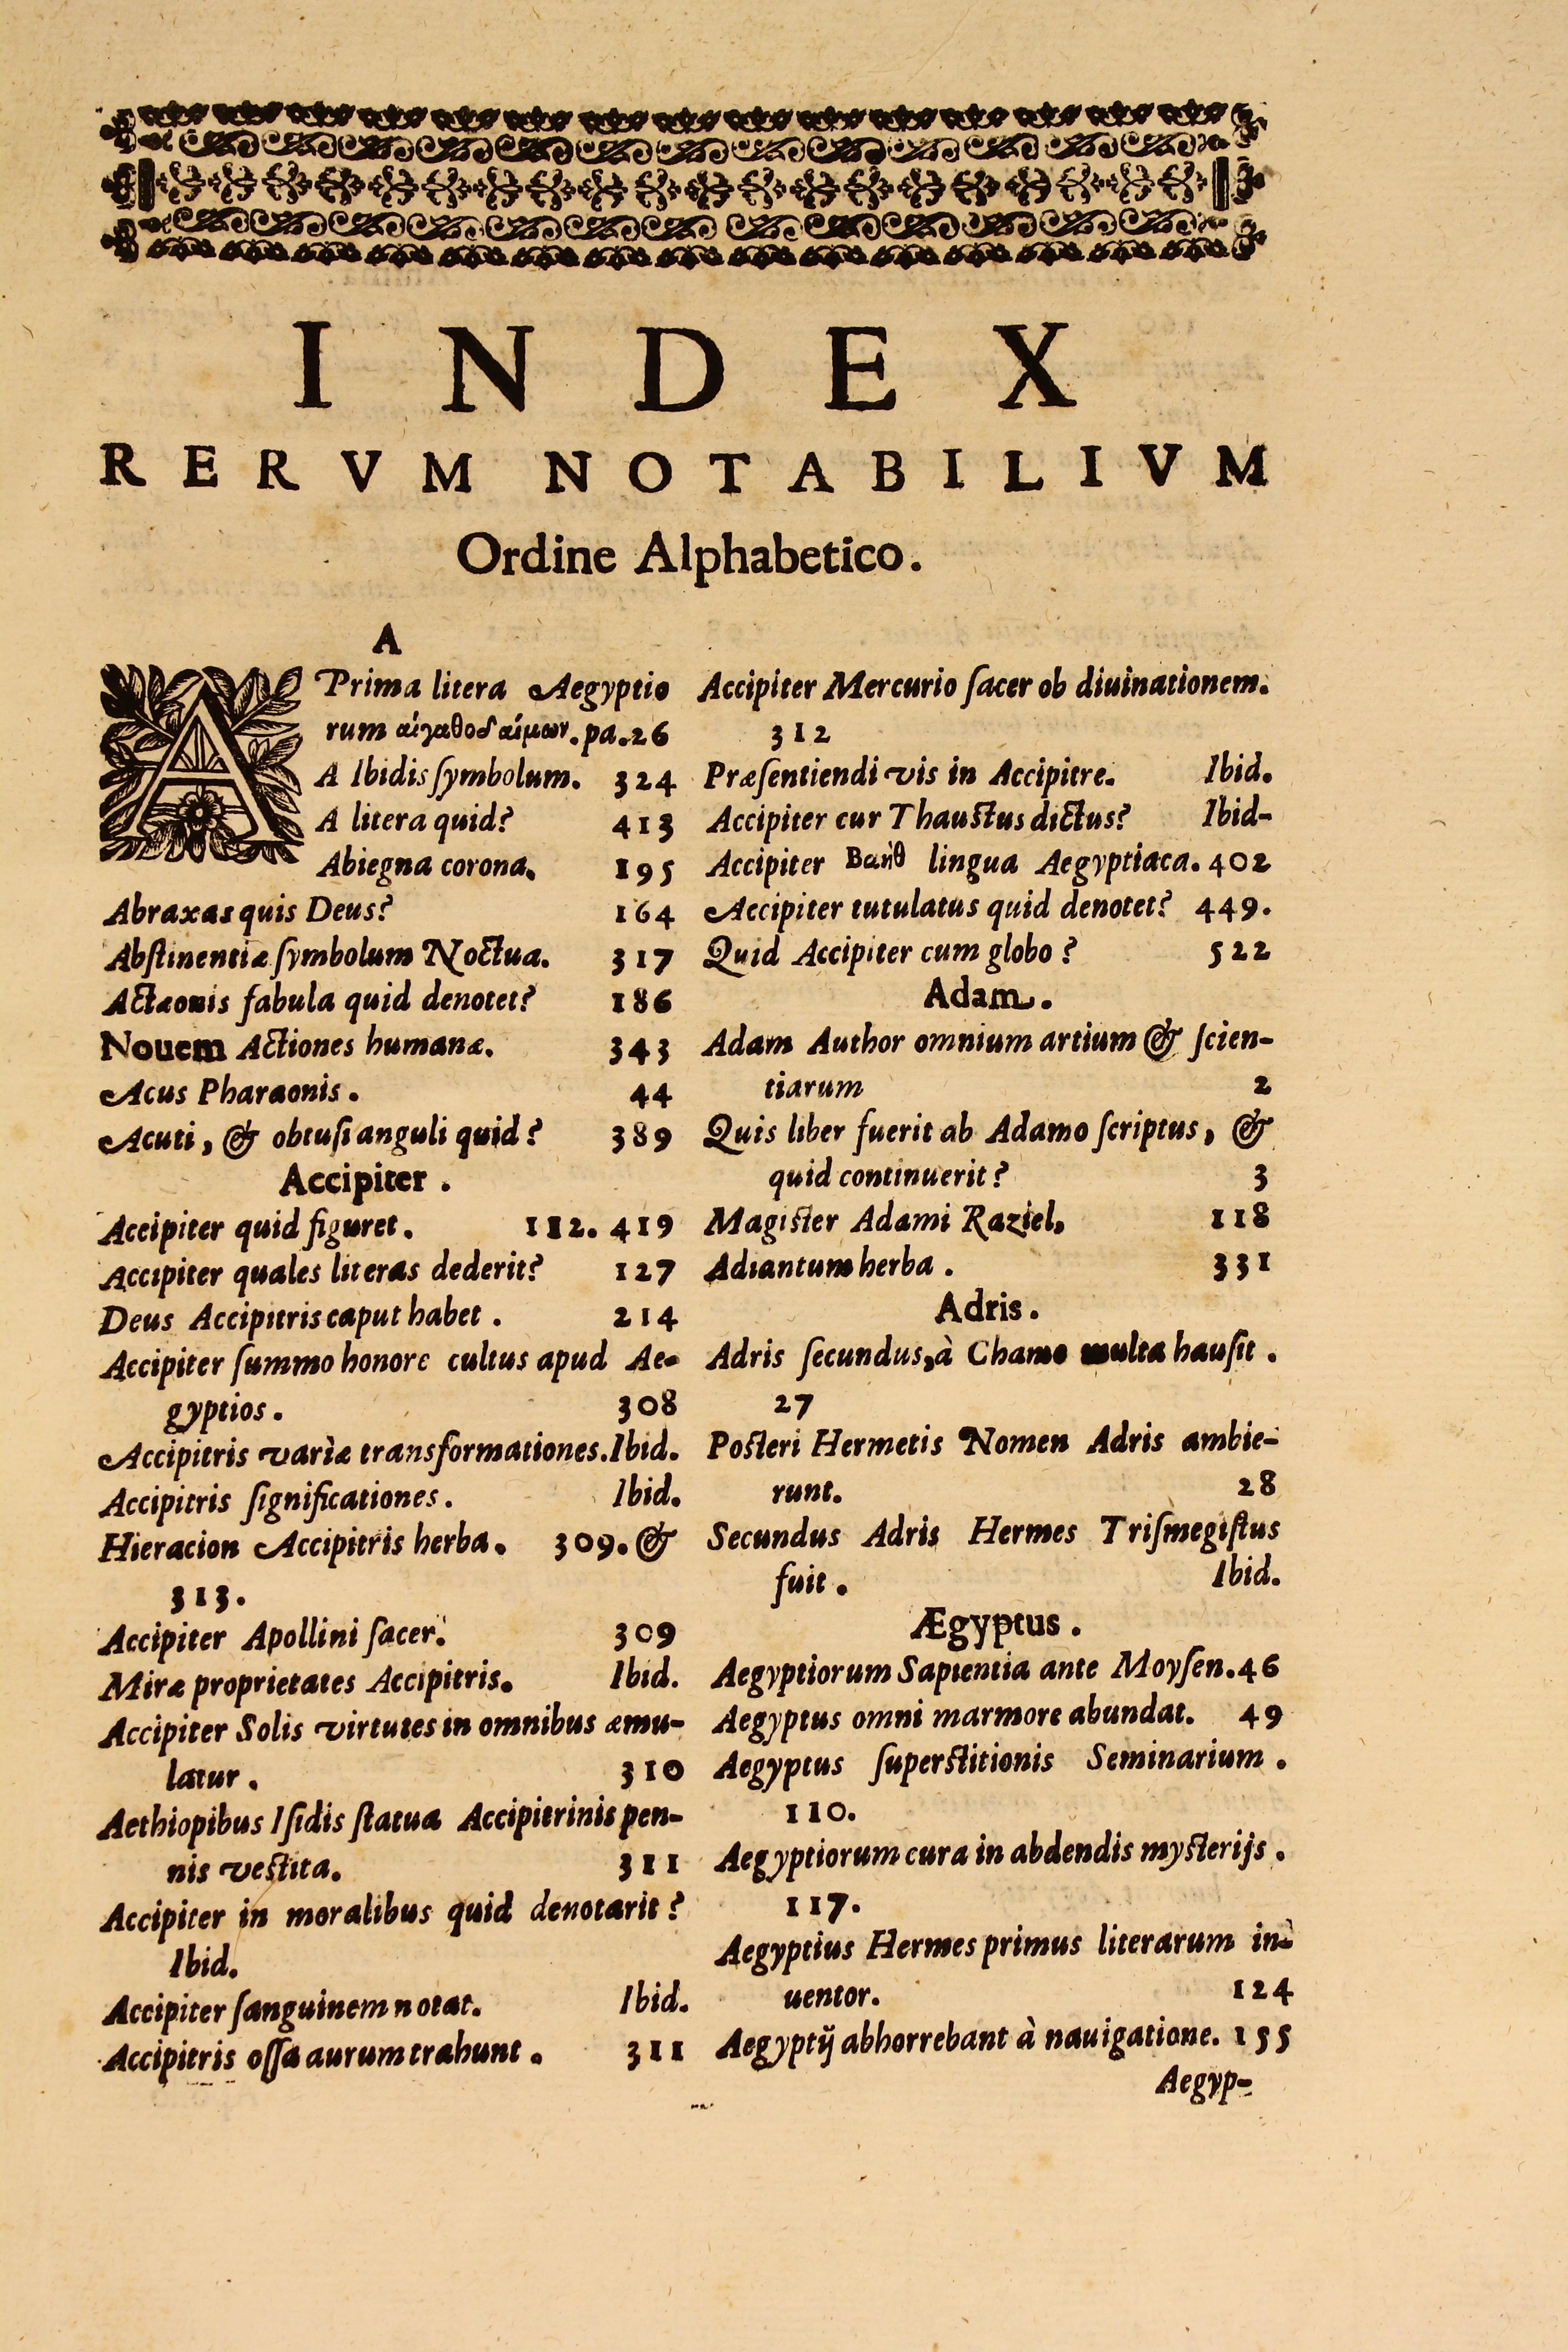 INDEX
RERVM NOTABILIVM
Ordine Alphabetico.
A
A Prima litera Aegyptio
rum αἀγαθοδαίμων. pa.26
A Ibidis ſymbolum. 324
A litera quid? 413
Abiegna corona. 195
Abraxas quis Deus? 164
Abſtinentiæ ſymbolum Noctua. 317
Actæonis fabula quid denotet? 186
Nouem Actiones humanæ. 343
Acus Pharaonis. 44
Acuti, & obtuſi anguli quid? 389
Accipiter.
Accipiter quid figuret. 112. 419
Accipiter quales literas dederit? 127
Deus Accipitris caput habet. 214
Accipiter ſummo honore cultus apud Ae-
gyptios. 308
Accipitris variæ transformationes. Ibid.
Accipitris ſignificationes. Ibid.
Hieracion Accipitris herba. 309. &
313.
Accipiter Apollini ſacer. 309
Miræ proprietates Accipitris. Ibid.
Accipiter Solis virtutes in omnibus æmu-
latur. 310
Aethiopibus Iſidis ſtatua Accipitrinis pen-
nis veſtita. 311
Accipiter in moralibus quid denotarit?
Ibid.
Accipiter ſanguinem notat. Ibid.
Accipitris oſſa aurum trahunt. 311
Accipiter Mercurio ſacer ob diuinationem.
312
Præſentiendi vis in Accipitre. Ibid.
Accipiter cur Thauſtus dictus? Ibid-
Accipiter Βαὴθ lingua Aegyptiaca. 402
Accipiter tutulatus quid denotet? 449.
Quid Accipiter cum globo? 522
Adam.
Adam Author omnium artium & ſcien-
tiarum 2
Quis liber fuerit ab Adamo ſcriptus, &
quid continuerit? 3
Magiſter Adami Raziel, 118
Adiantum herba. 331
Adris.
Adris ſecundus, à Chamo multa hauſit.
27
Poſteri Hermetis Nomen Adris ambie-
runt. 28
Secundus Adris Hermes Triſmegiſtus
fuit. Ibid.
Ægyptus.
Aegyptiorum Sapientia ante Moyſen. 46
Aegyptus omni marmore abundat. 49
Aegyptus ſuperſtitionis Seminarium.
110.
Aegyptiorum cura in abdendis myſterijs.
117.
Aegyptius Hermes primus literarum in-
uentor. 124
Aegyptij abhorrebant à nauigatione. 155
Aegyp-